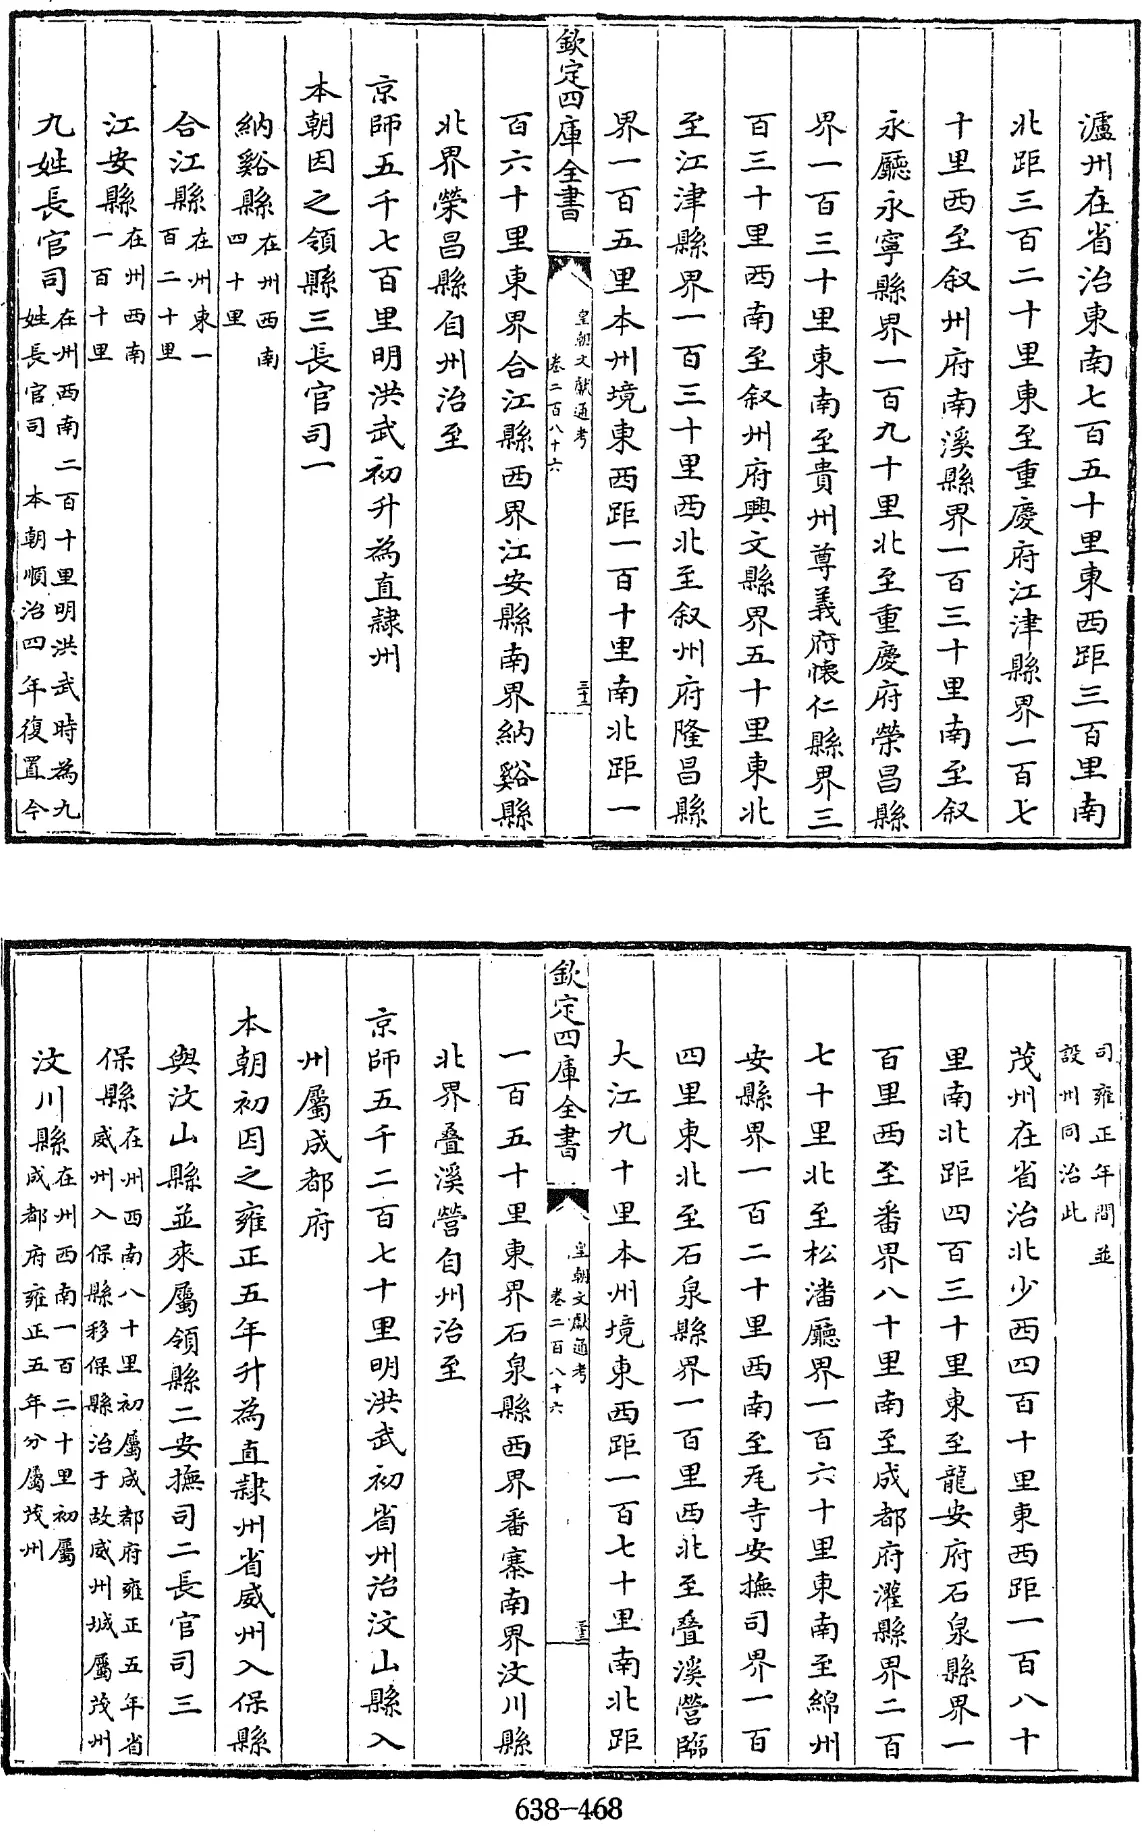 瀘州在省治東南七百五十里東西距三百里南
北距三百二十里東至重慶府江津縣界一百七
十里西至叙州府南溪縣界一百三十里南至叙
永廳永寧縣界一百九十里北至重慶府榮昌縣
界一百三十里東南至貴州尊義府懷仁縣界三
百三十里西南至叙州府興文縣界五十里東北
至江津縣界一百三十里西北至叙州府隆昌縣
界一百五里本州境東西距一百十里南北距一
欽定四庫全書
皇朝文獻通考
卷二百八十六
三十二
百六十里東界合江縣西界江安縣南界納谿縣
北界榮昌縣自州治至
京師五千七百里明洪武初升為直隸州
本朝因之領縣三長官司一
納谿縣在州西南四十里
合江縣在州東一百二十里
江安縣在州西南一百十里
九姓長官司在州西南二百十里明洪武時為九姓長官司 本朝順治四年復置今
司雍正年間並設州同治此
茂州在省治北少西四百十里東西距一百八十
里南北距四百三十里東至龍安府石泉縣界一
百里西至番界八十里南至成都府灌縣界二百
七十里北至松潘廳界一百六十里東南至綿州
安縣界一百二十里西南至瓦寺安撫司界一百
四里東北至石泉縣界一百里西北至疊溪營臨
大江九十里本州境東西距一百七十里南北距
欽定四庫全書
皇朝文獻通考
卷二百八十六
三十三
一百五十里東界石泉縣西界番寨南界汶川縣
北界疊溪營自州治至
京師五千二百七十里明洪武初省州治汶山縣入
州屬成都府
本朝初因之雍正五年升為直隸州省威州入保縣
與汶山縣並來屬領縣二安撫司二長官司三
保縣在州西南八十里初屬成都府雍正五年省威州入保縣移保縣治于故威州城屬茂州
汶川縣在州西南一百二十里初屬成都府雍正五年分屬茂州
638-468